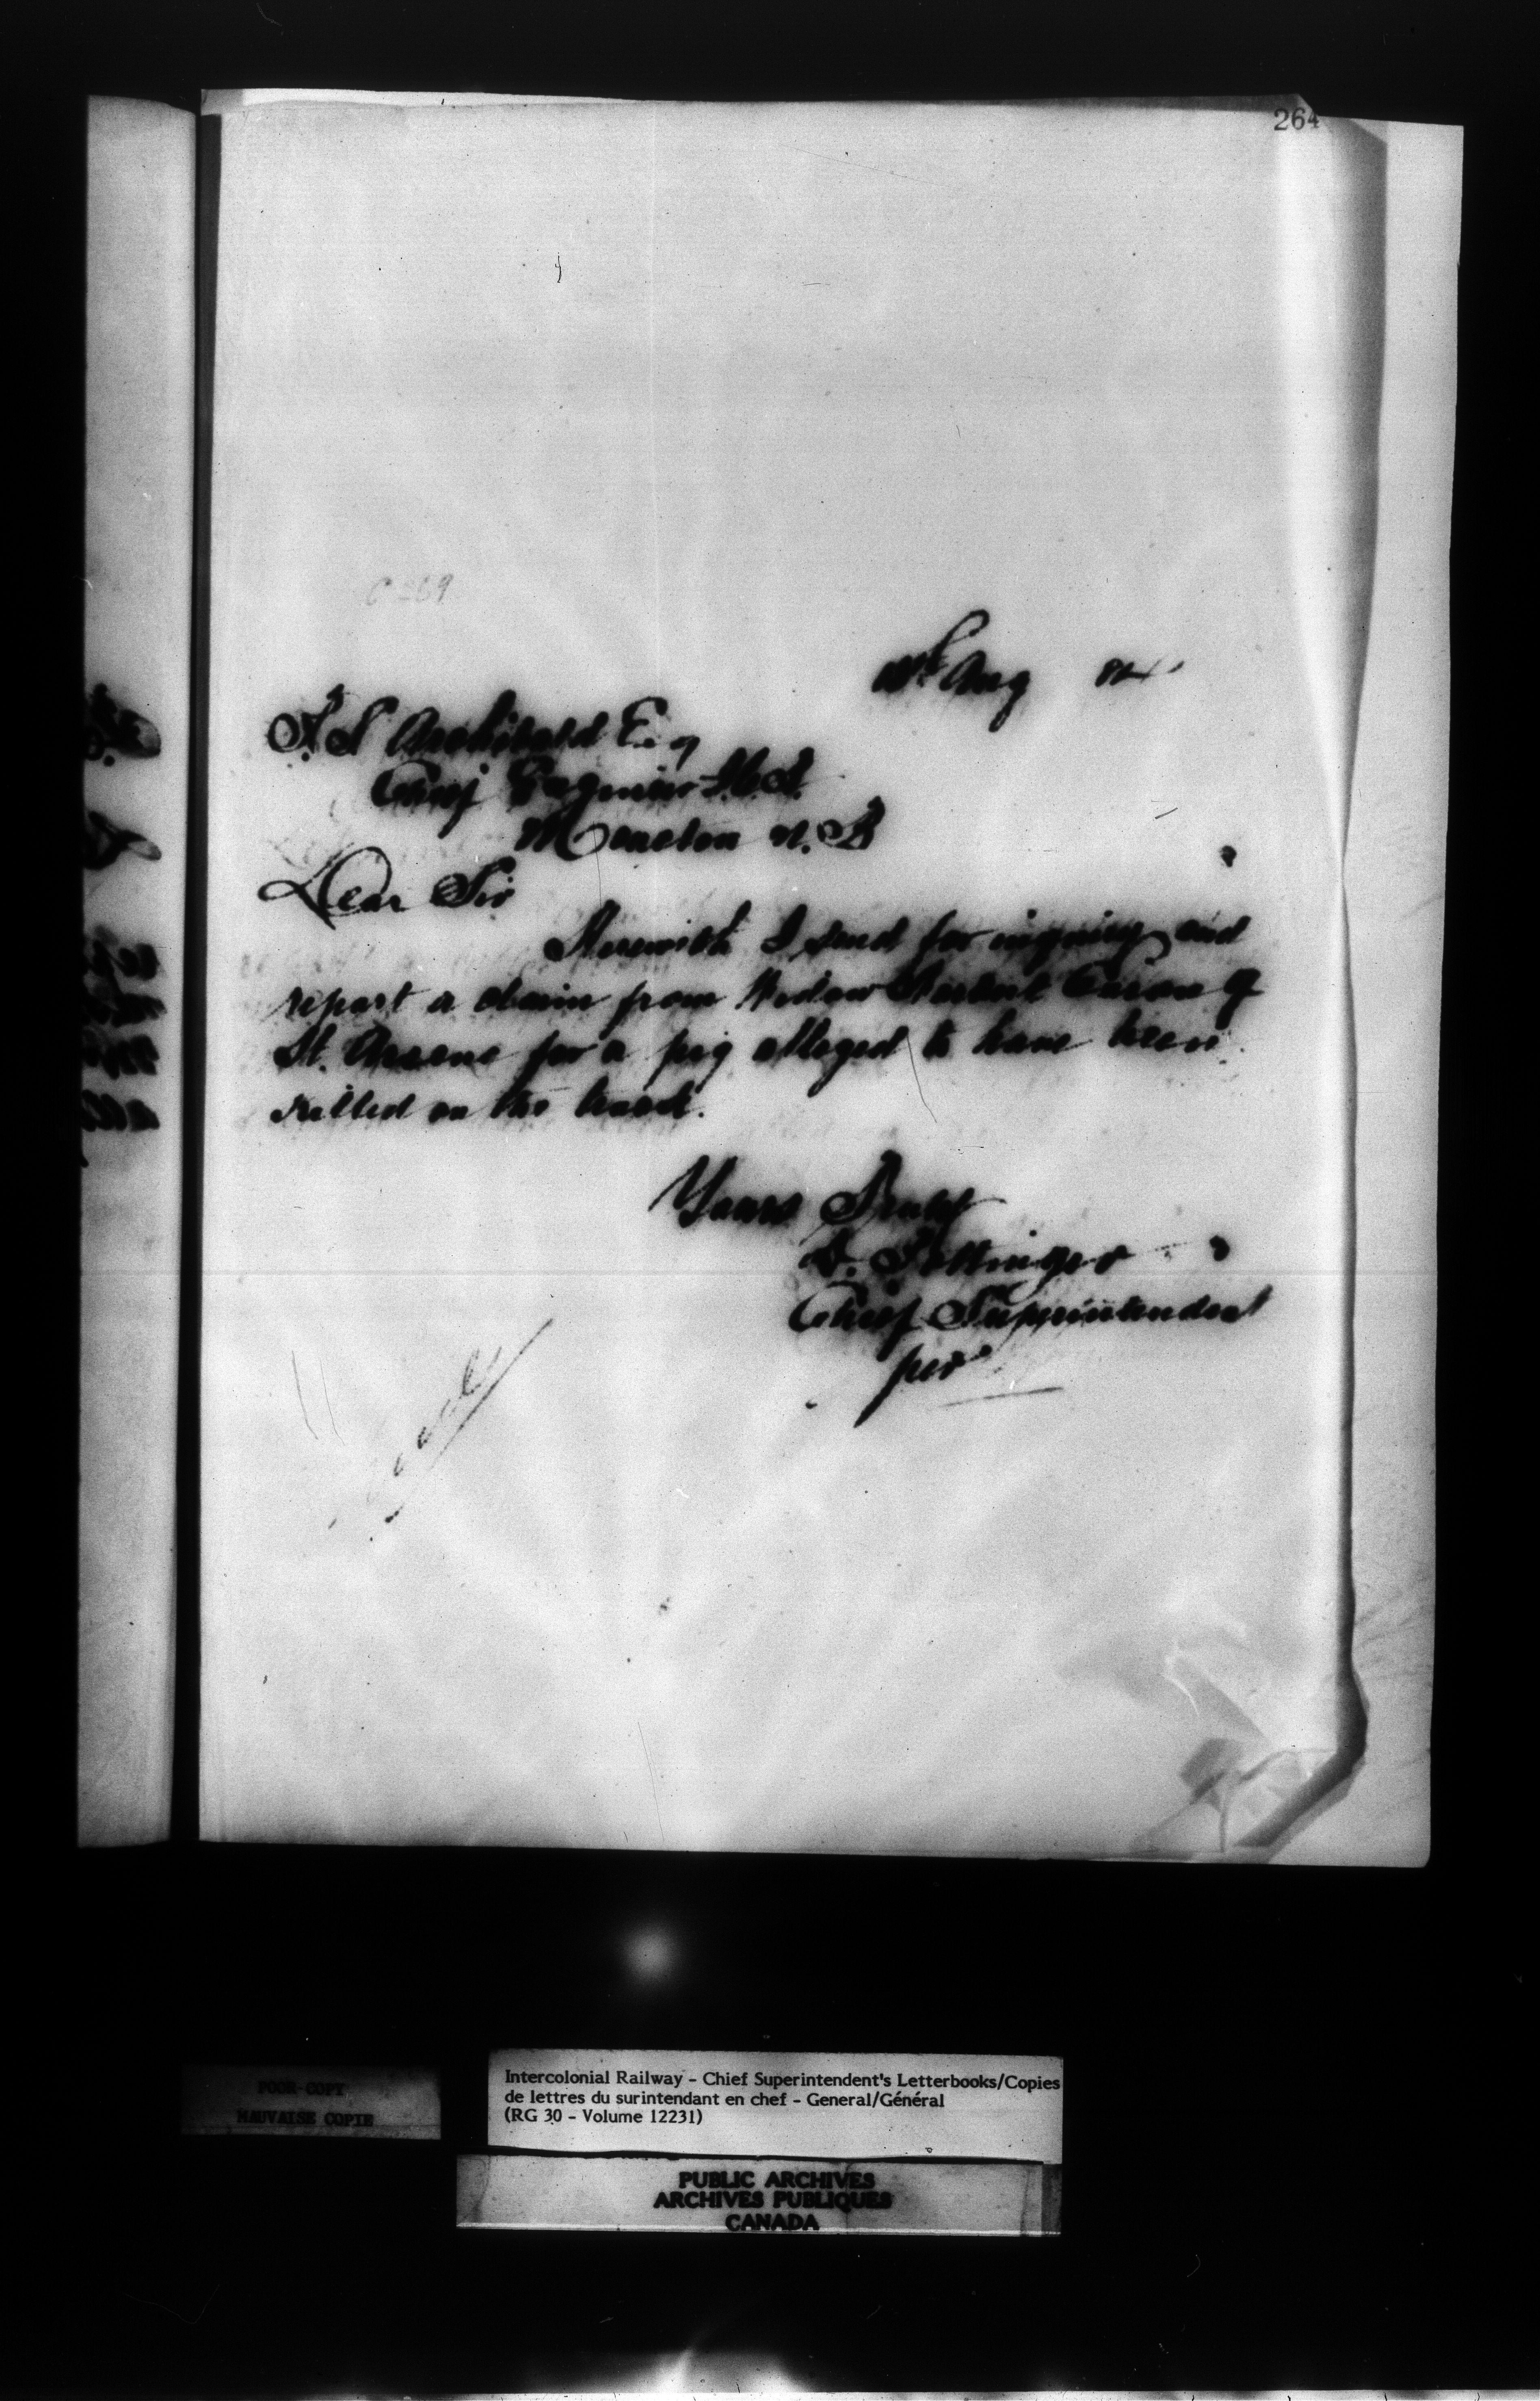 264
Aug 84
P. S Archibald Esq
Chief Engineer I.C.R.
Moncton N.B
Dear Sir
Herewith I send for inquiry and
report a claim from Widow Caron of
St. Arsene for a pig alleged to have been
killed on the track.
Yours Truly
D. Pottinger
Chief Superintendent
per
POOR COPY
MAUVAISE COPIE
Intercolonial Railway - Chief Superintendent's Letterbooks/Copies
de lettres du surintendant en chef - General/Général
(RG 30 - Volume 12231)
PUBLIC ARCHIVES
ARCHIVES PUBLIQUES
CANADA